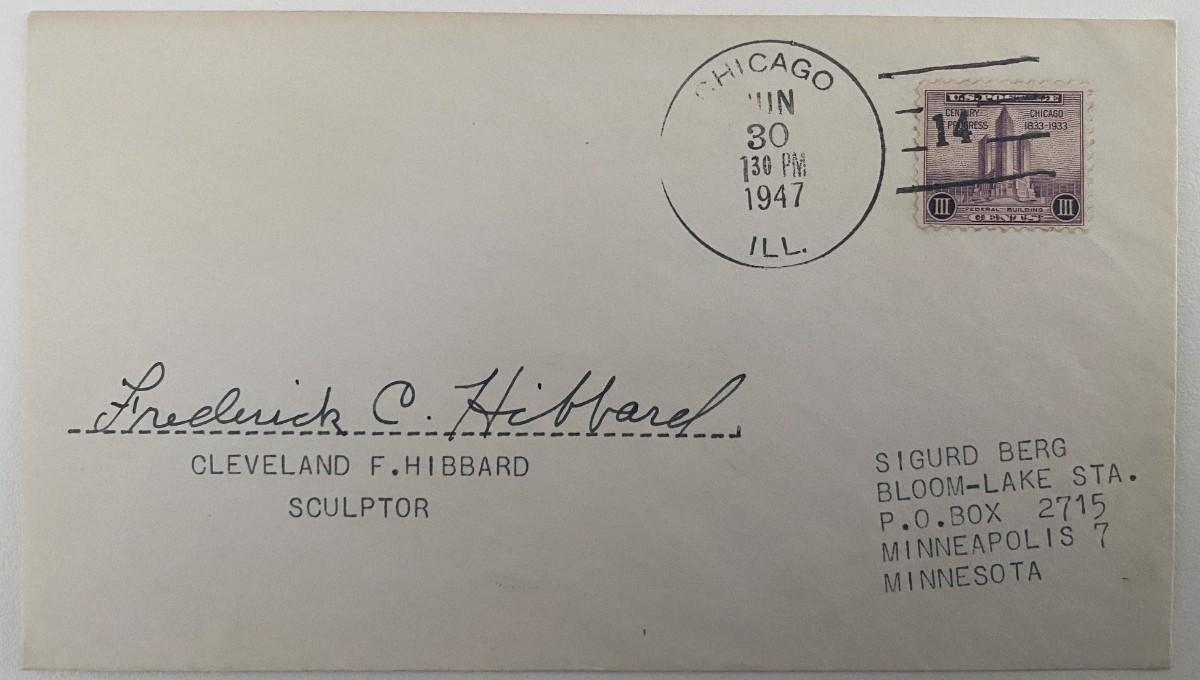 CHICAGO
JUN
30
1 30 PM
1947
ILL.
U.S. POSTAGE
CENTURY OF PROGRESS
CHICAGO 1833-1933
14
FEDERAL BUILDING
III CENTS III
Frederick C. Hibbard
CLEVELAND F.HIBBARD
SCULPTOR
SIGURD BERG
BLOOM-LAKE STA.
P.O.BOX 2715
MINNEAPOLIS 7
MINNESOTA